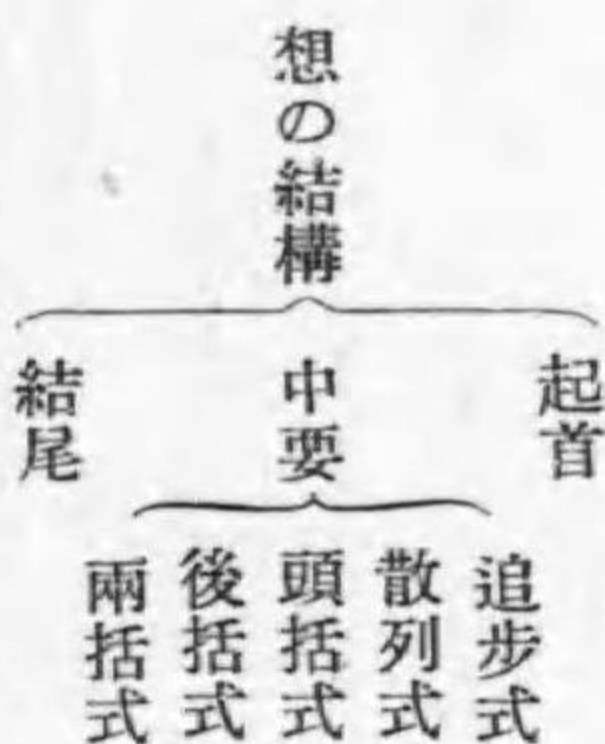 想の結構
起首
中要
結尾
追步式
散列式
頭括式
後括式
兩括式